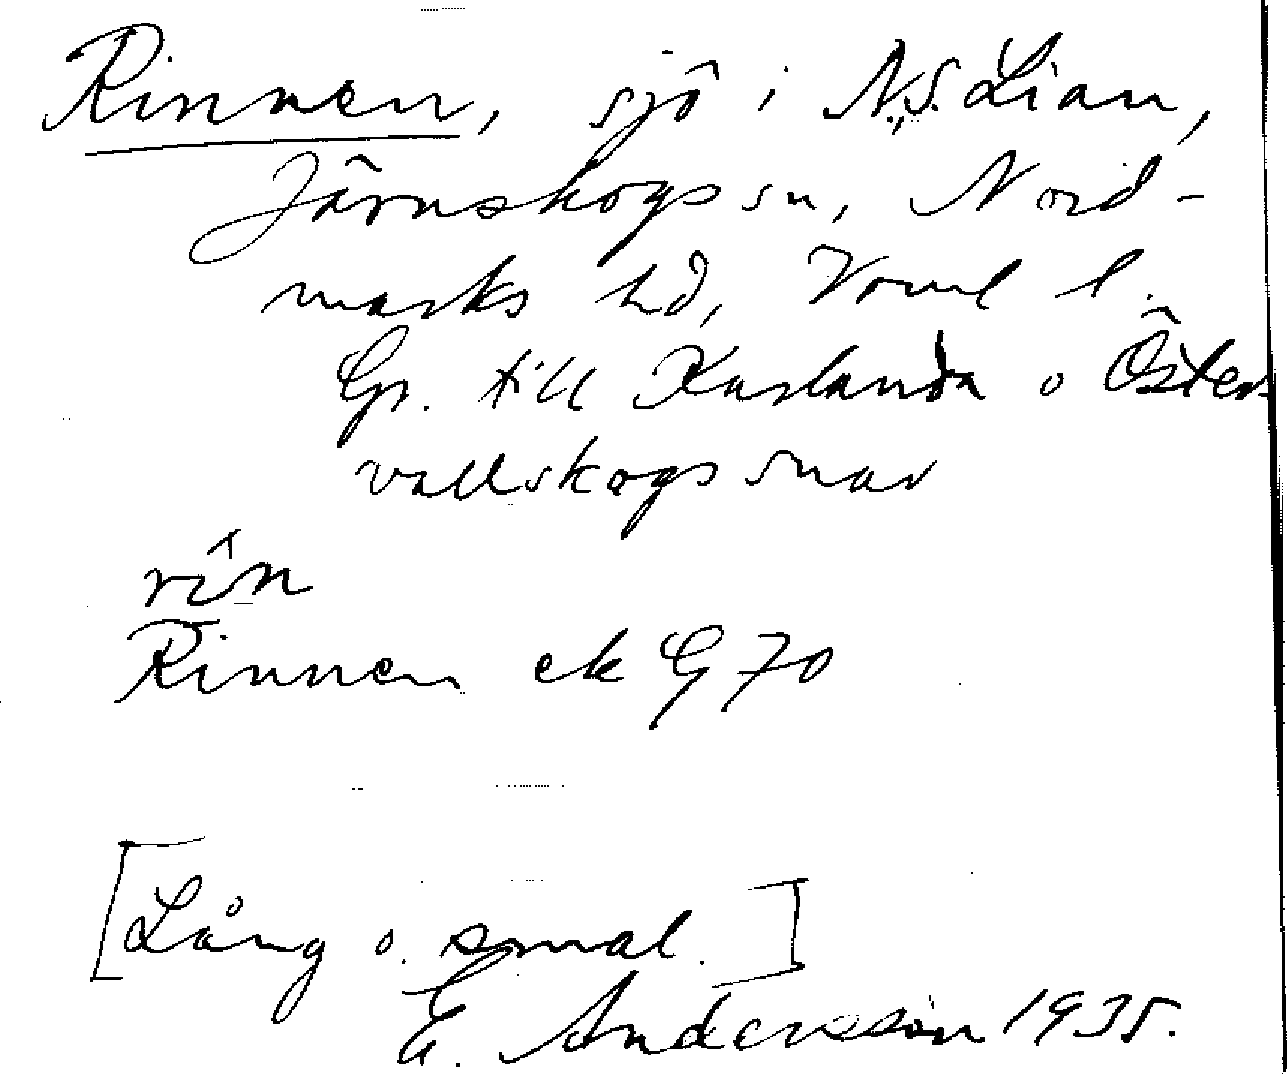 Rinnen, sjö i N.S. Lian,
Järnskogs sn, Nord-
marks hd, Vrml l.
Gr. till Karlanda o Öster
vallskogs snar
rîn
Rinnen ek G 70
[Lång o. smal.]
E. Andersson 1935.